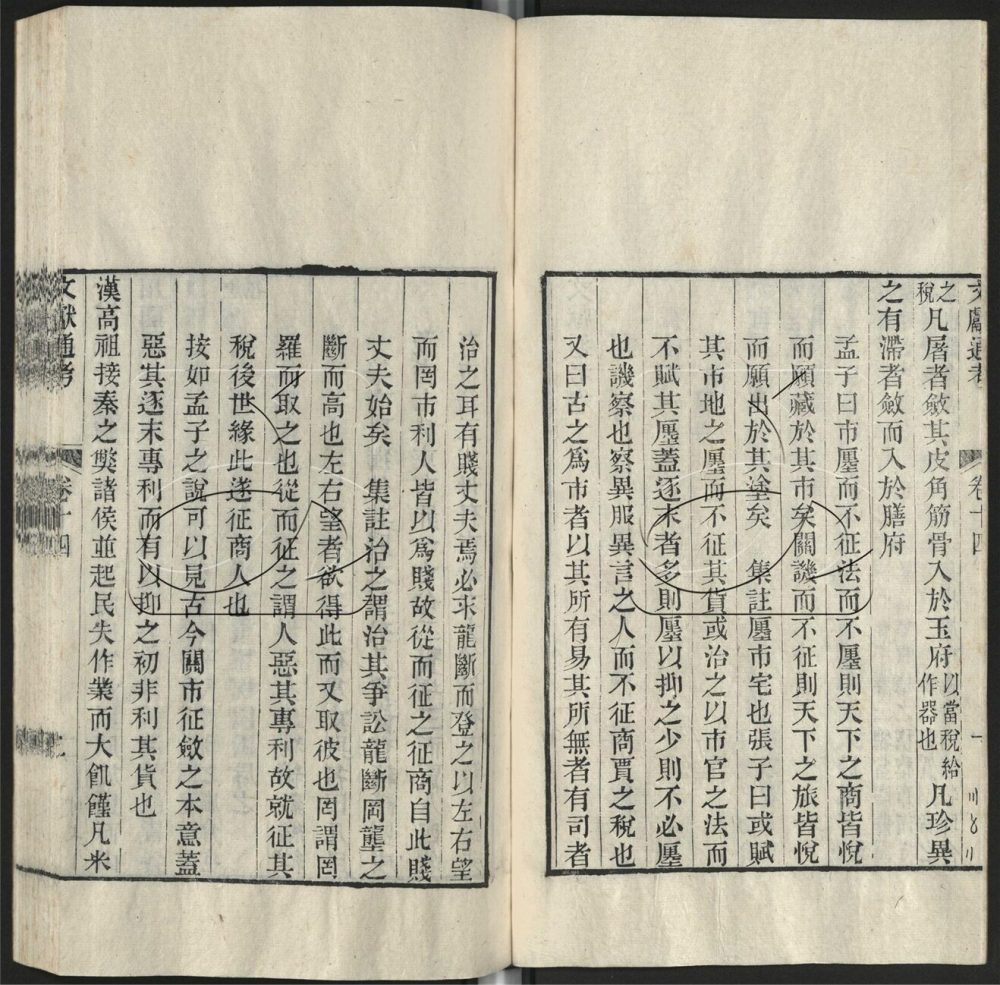 文獻通考 卷十四 一
之稅凡屠者斂其皮角筋骨入於玉府以當稅給作器也凡珍異
之有滯者斂而入於膳府
孟子曰市廛而不征法而不廛則天下之商皆悅
而願藏於其市矣關譏而不征則天下之旅皆悅
而願出於其塗矣 集註廛市宅也張子曰或賦
其市地之廛而不征其貨或治之以市官之法而
不賦其廛蓋逐末者多則廛以抑之少則不必廛
也譏察也察異服異言之人而不征商賈之稅也
又曰古之爲市者以其所有易其所無者有司者
治之耳有賤丈夫焉必求龍斷而登之以左右望
而罔市利人皆以爲賤故從而征之征商自此賤
丈夫始矣 集註治之謂治其爭訟龍斷岡壟之
斷而高也左右望者欲得此而又取彼也罔謂罔
羅而取之也從而征之謂人惡其專利故就征其
稅後世緣此遂征商人也
按如孟子之說可以見古今關市征斂之本意蓋
惡其逐末專利而有以抑之初非利其貨也
漢高祖接秦之獘諸侯並起民失作業而大飢饉凡米
文獻通考 卷十四